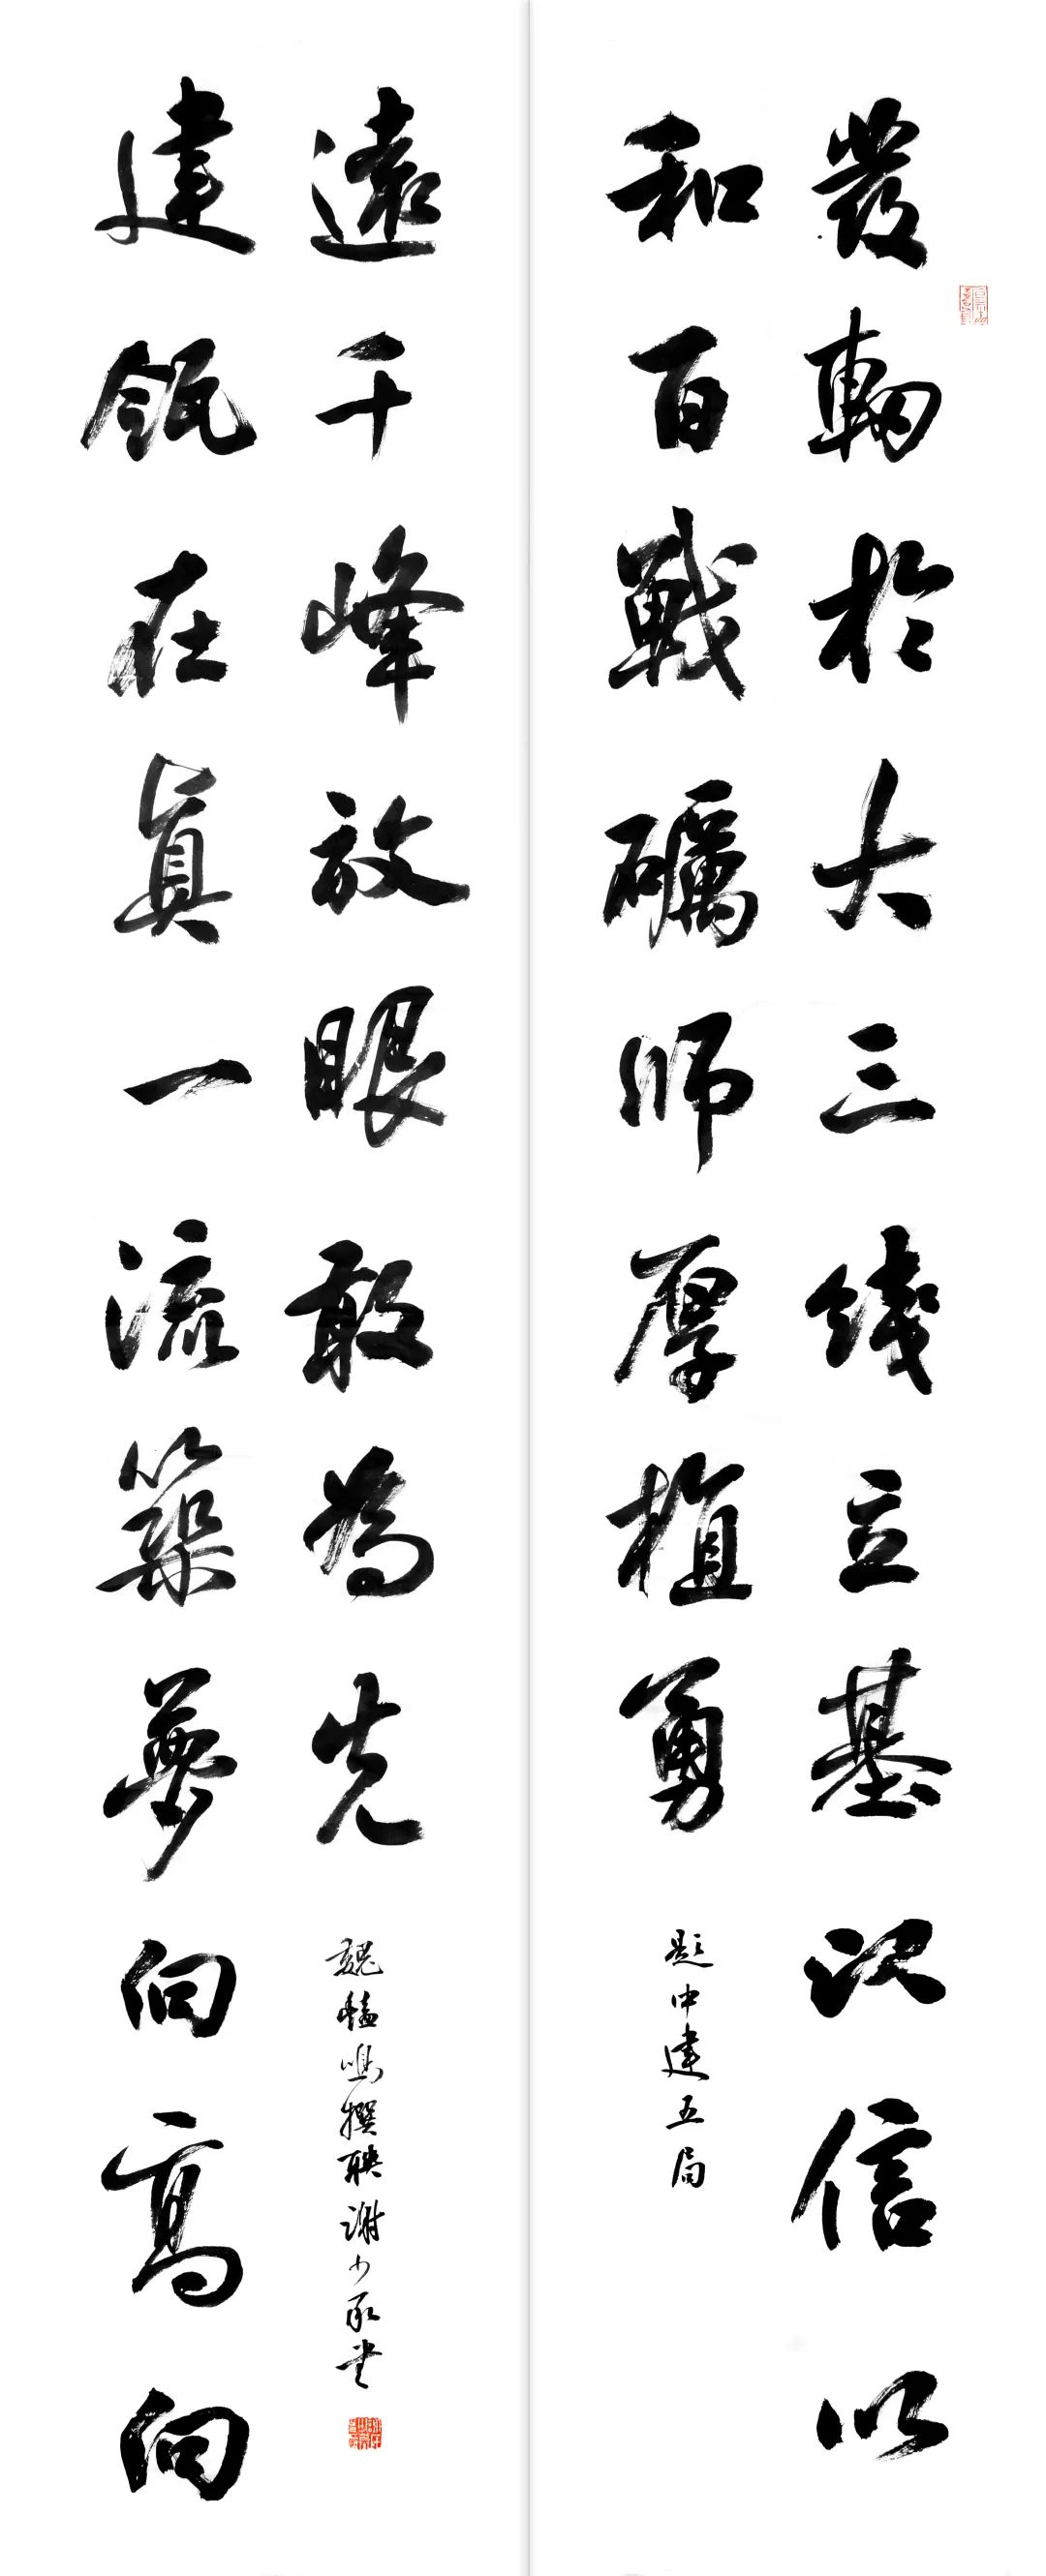 發軔於大三綫立基以信以
和百戰礪師厚植勇
題中建五局
建瓴在真一流築夢向高向
遠千峰放眼敢為先
魏鳴撰聯謝少承書